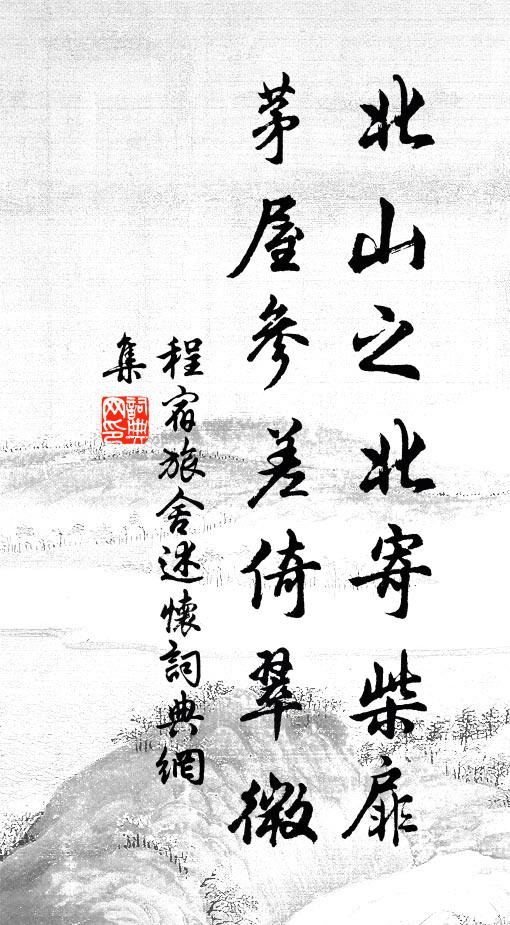 北山之北寄柴扉
茅屋參差倚翠微
程宿旅舍述懷詞典網
集
詞典網印